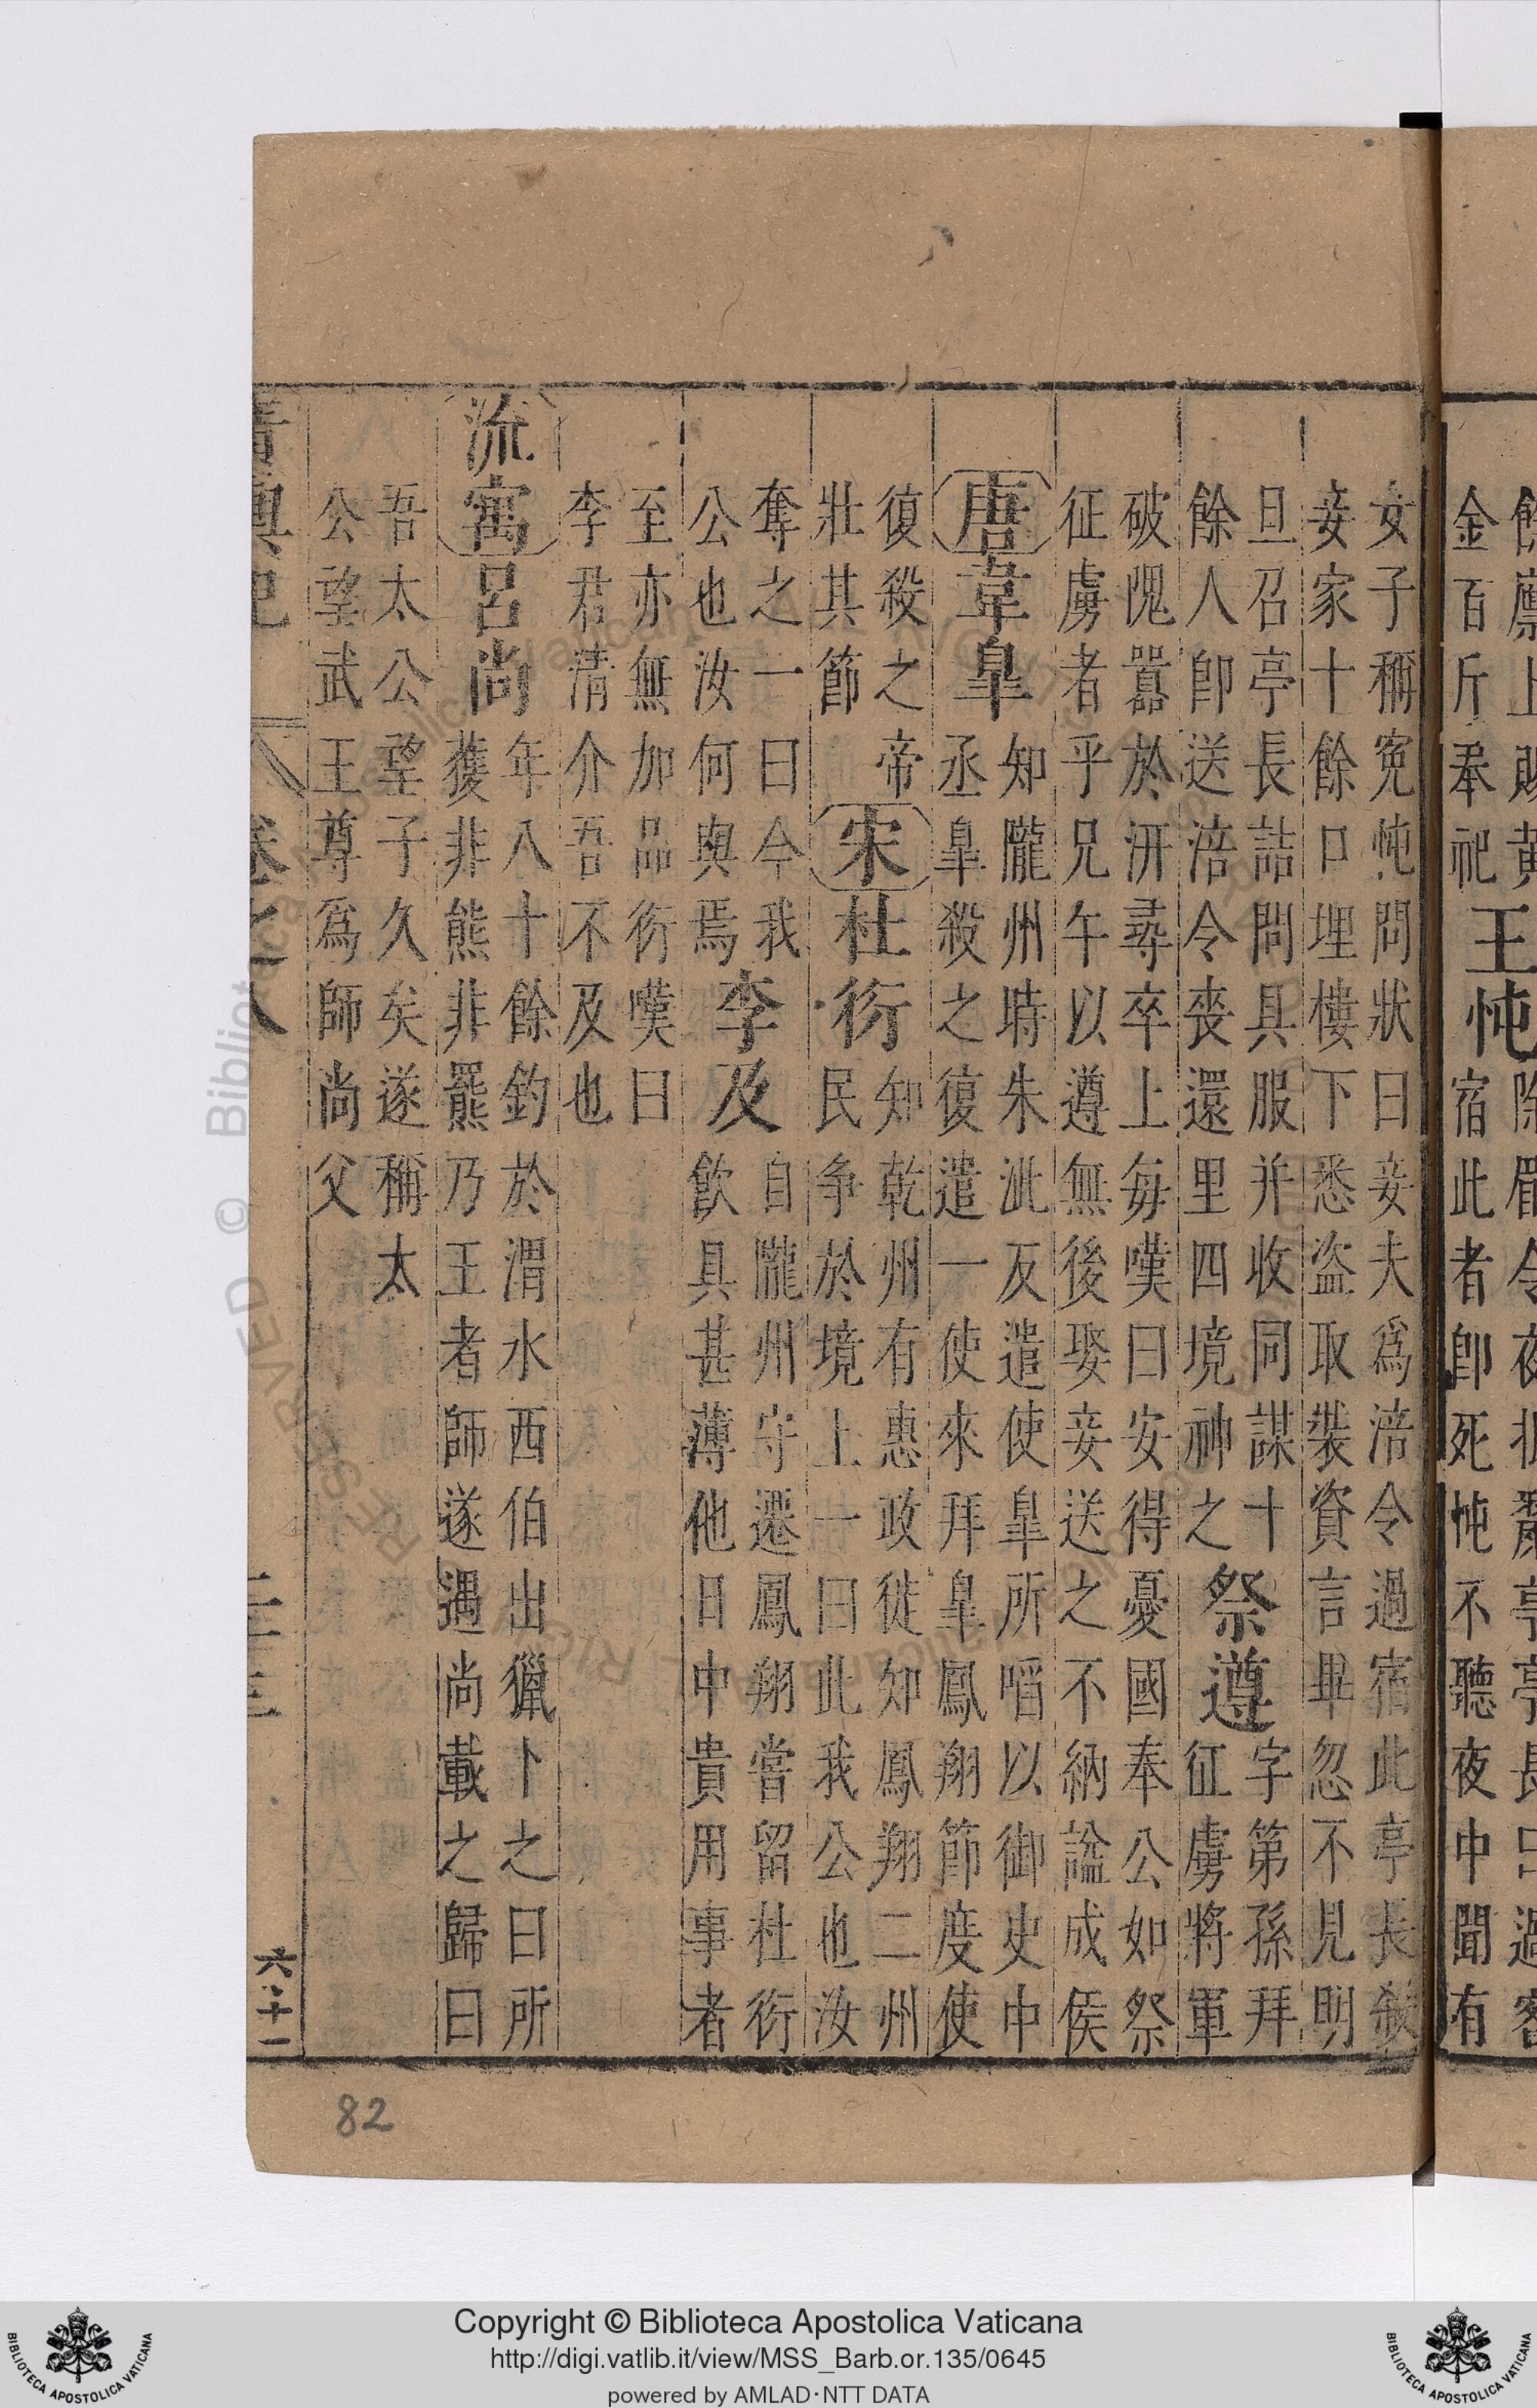 上賜黃
金百斤奉祀王忳除郿令夜
宿此者卽死忳不聽夜中聞有
女子稱寃忳問狀曰妾夫爲涪令過宿此亭亭長殺
妾家十餘口埋樓下悉盜取裝資言畢忽不見明
旦召亭長詰問具服并收同謀十
餘人卽送涪令喪還里四境神之祭遵字第孫拜
征虜將軍
破隗囂於汧尋卒上每嘆曰安得憂國奉公如祭
征虜者乎兄午以遵無後娶妾送之不納謚成侯
唐韋臯知隴州時朱泚反遣使臯所啗以御史中
丞臯殺之復遣一使來拜臯鳳翔節度使
復殺之帝
壯其節宋杜衍知乾州有惠政徙知鳳翔二州
民争於境上一曰此我公也汝
奪之一曰今我
公也汝何與焉李及自隴州守遷鳳翔嘗留杜衍
飲具甚薄他日中貴用事者
至亦無加品衍嘆曰
李君清介吾不及也
流寓呂尚年八十餘釣於渭水西伯出獵卜之曰所
獲非熊非羆乃王者師遂遇尚載之歸曰
吾太公望子久矣遂稱太
公望武王尊爲師尚父
卷之八
六十一
82
Copyright © Biblioteca Apostolica Vaticana
http://digi.vatlib.it/view/MSS_Barb.or.135/0645
powered by AMLAD·NTT DATA
BIBLIOTECA APOSTOLICA VATICANA
BIBLIOTECA APOSTOLICA VATICANA